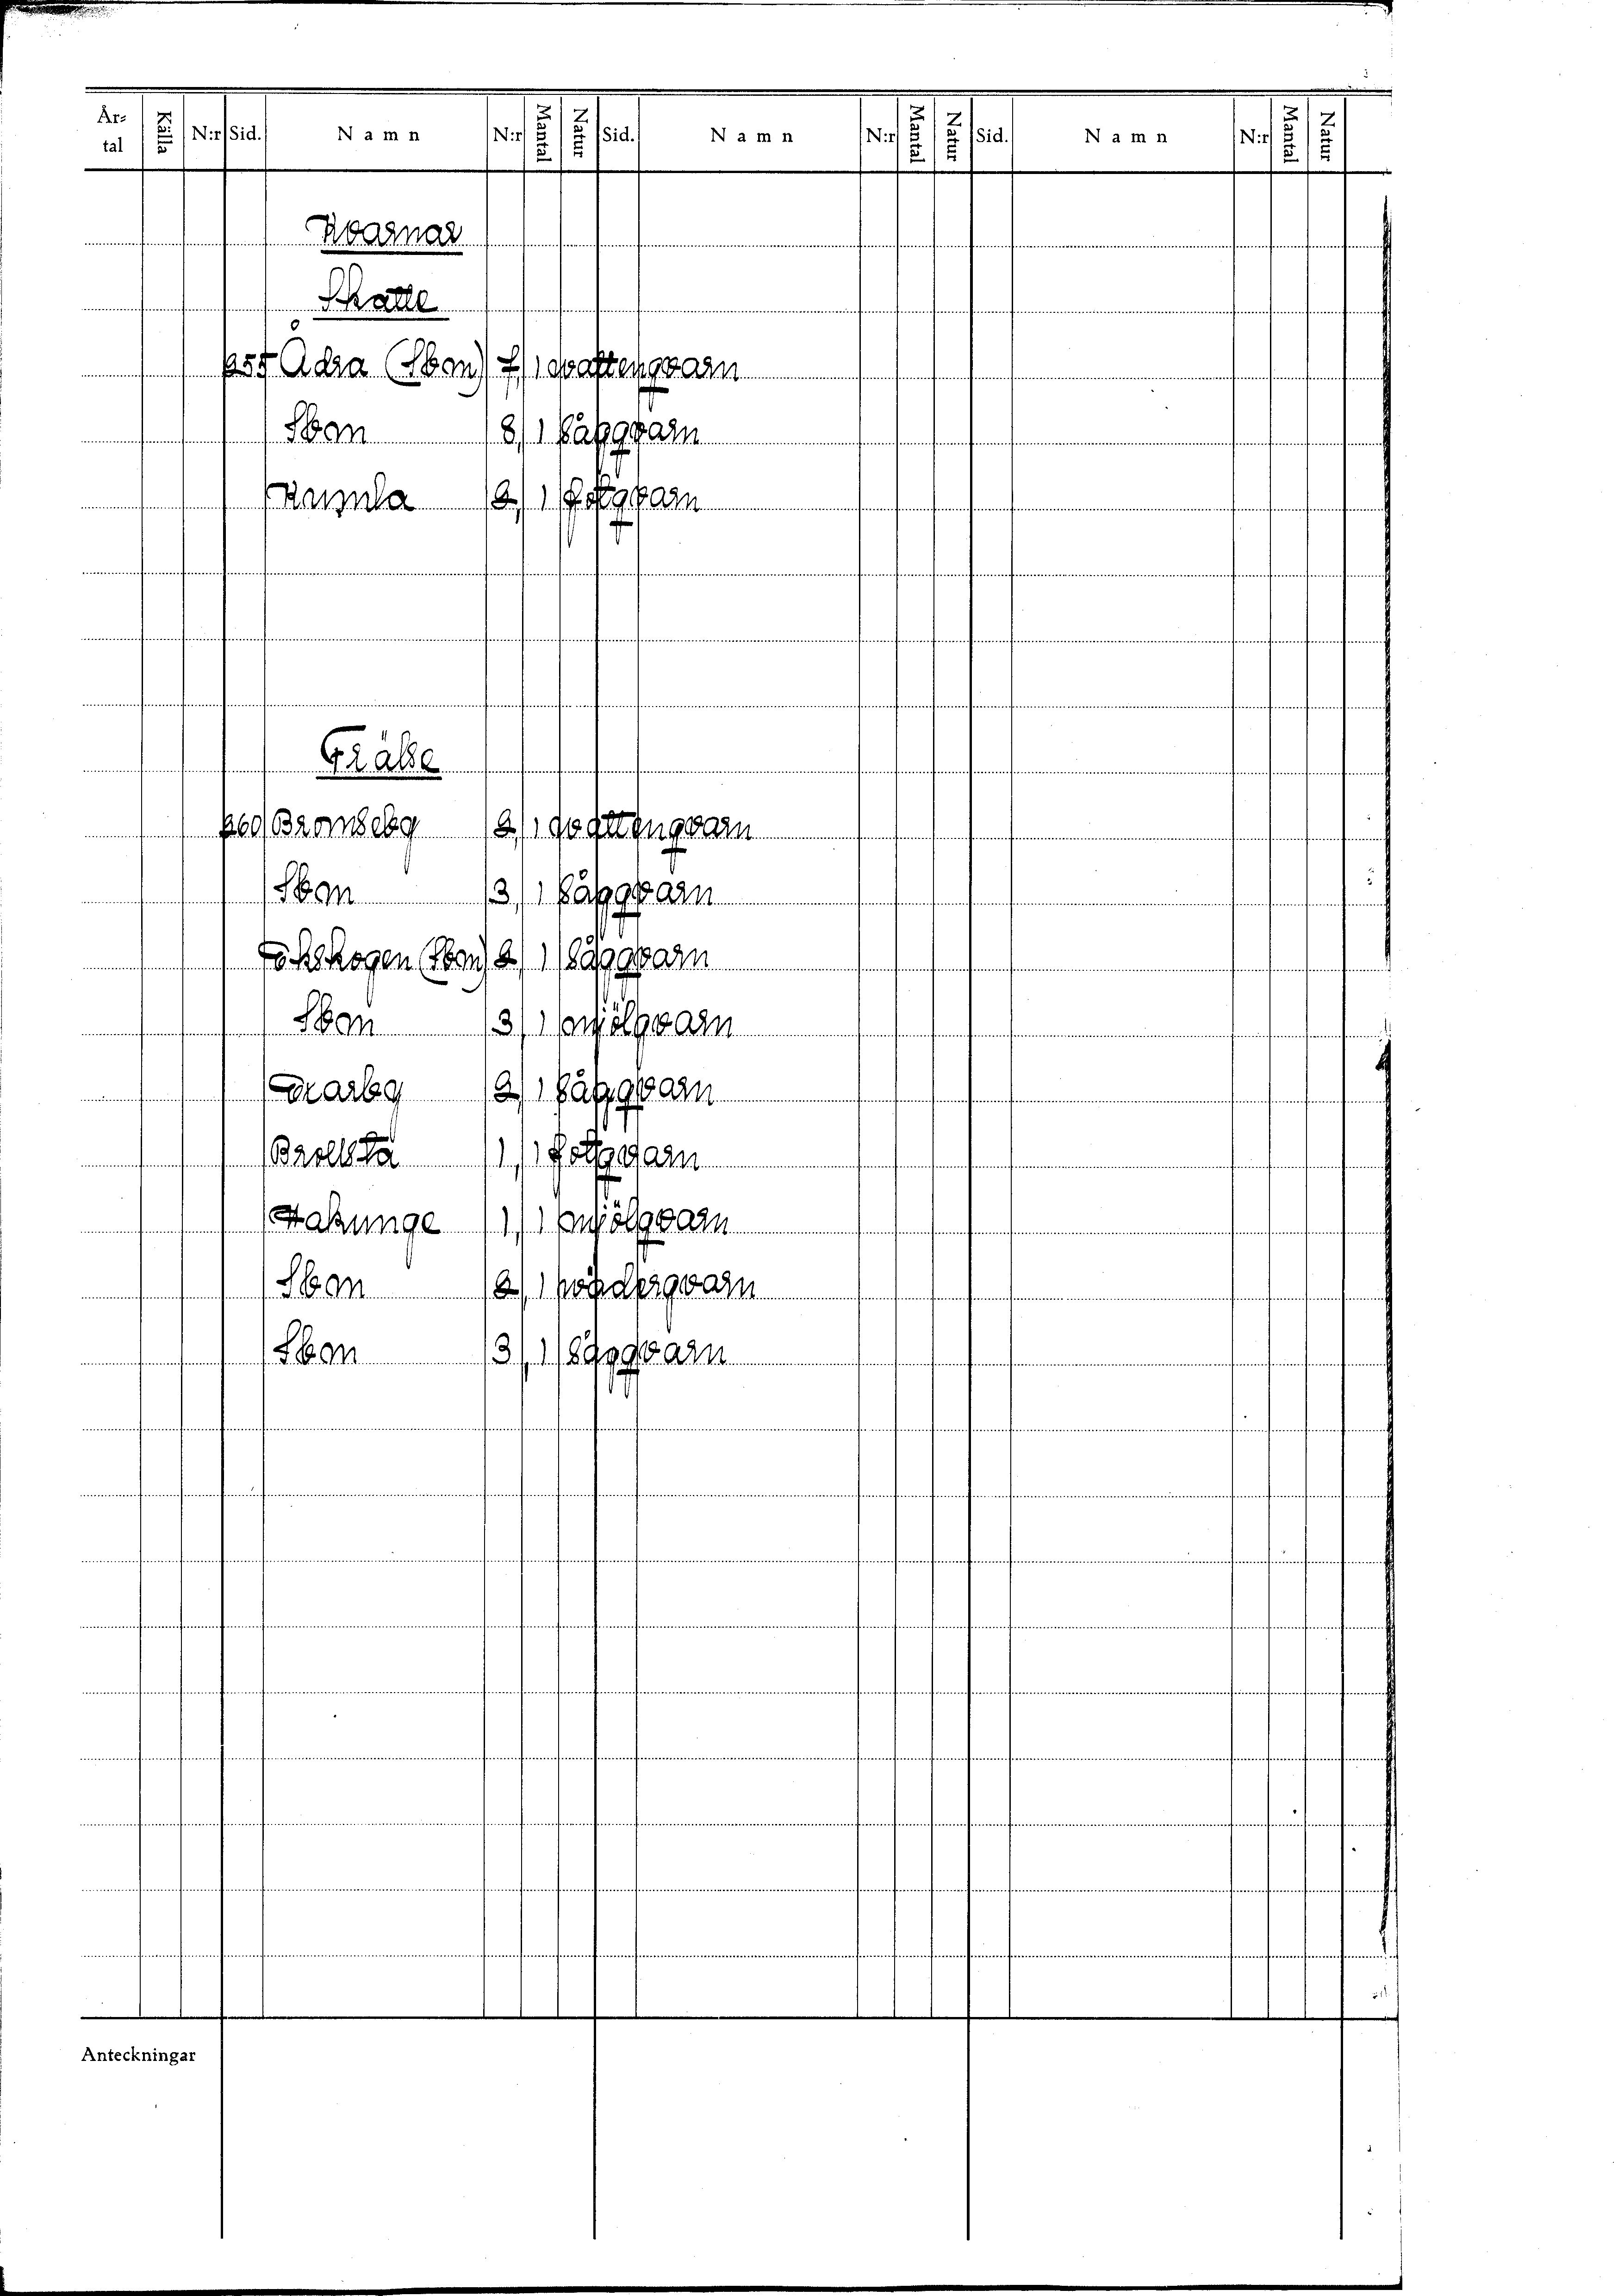 År- tal Källa N:r Sid. Namn N:r Mantal Natur Sid. Namn N:r Mantal Natur Sid. Namn N:r Mantal Natur
Kvarnar
Skatte
Ådra (Sbm) 7, 1 vattenqvarn
Sbm 8, 1 sågqvarn
Kumla 2, 1 fotqvarn
Frälse
260 Bromseby 2, 1 vattenqvarn
Sbm 3, 1 sågqvarn
(Sbm) 2, 1 sågqvarn
Sbm 3, 1 mjölqvarn
2, 1 sågqvarn
Brollsta 1, 1 fotqvarn
Hakunge 1, 1 mjölqvarn
Sbm 2, 1 väderqvarn
Sbm 3, 1 sågqvarn
Anteckningar